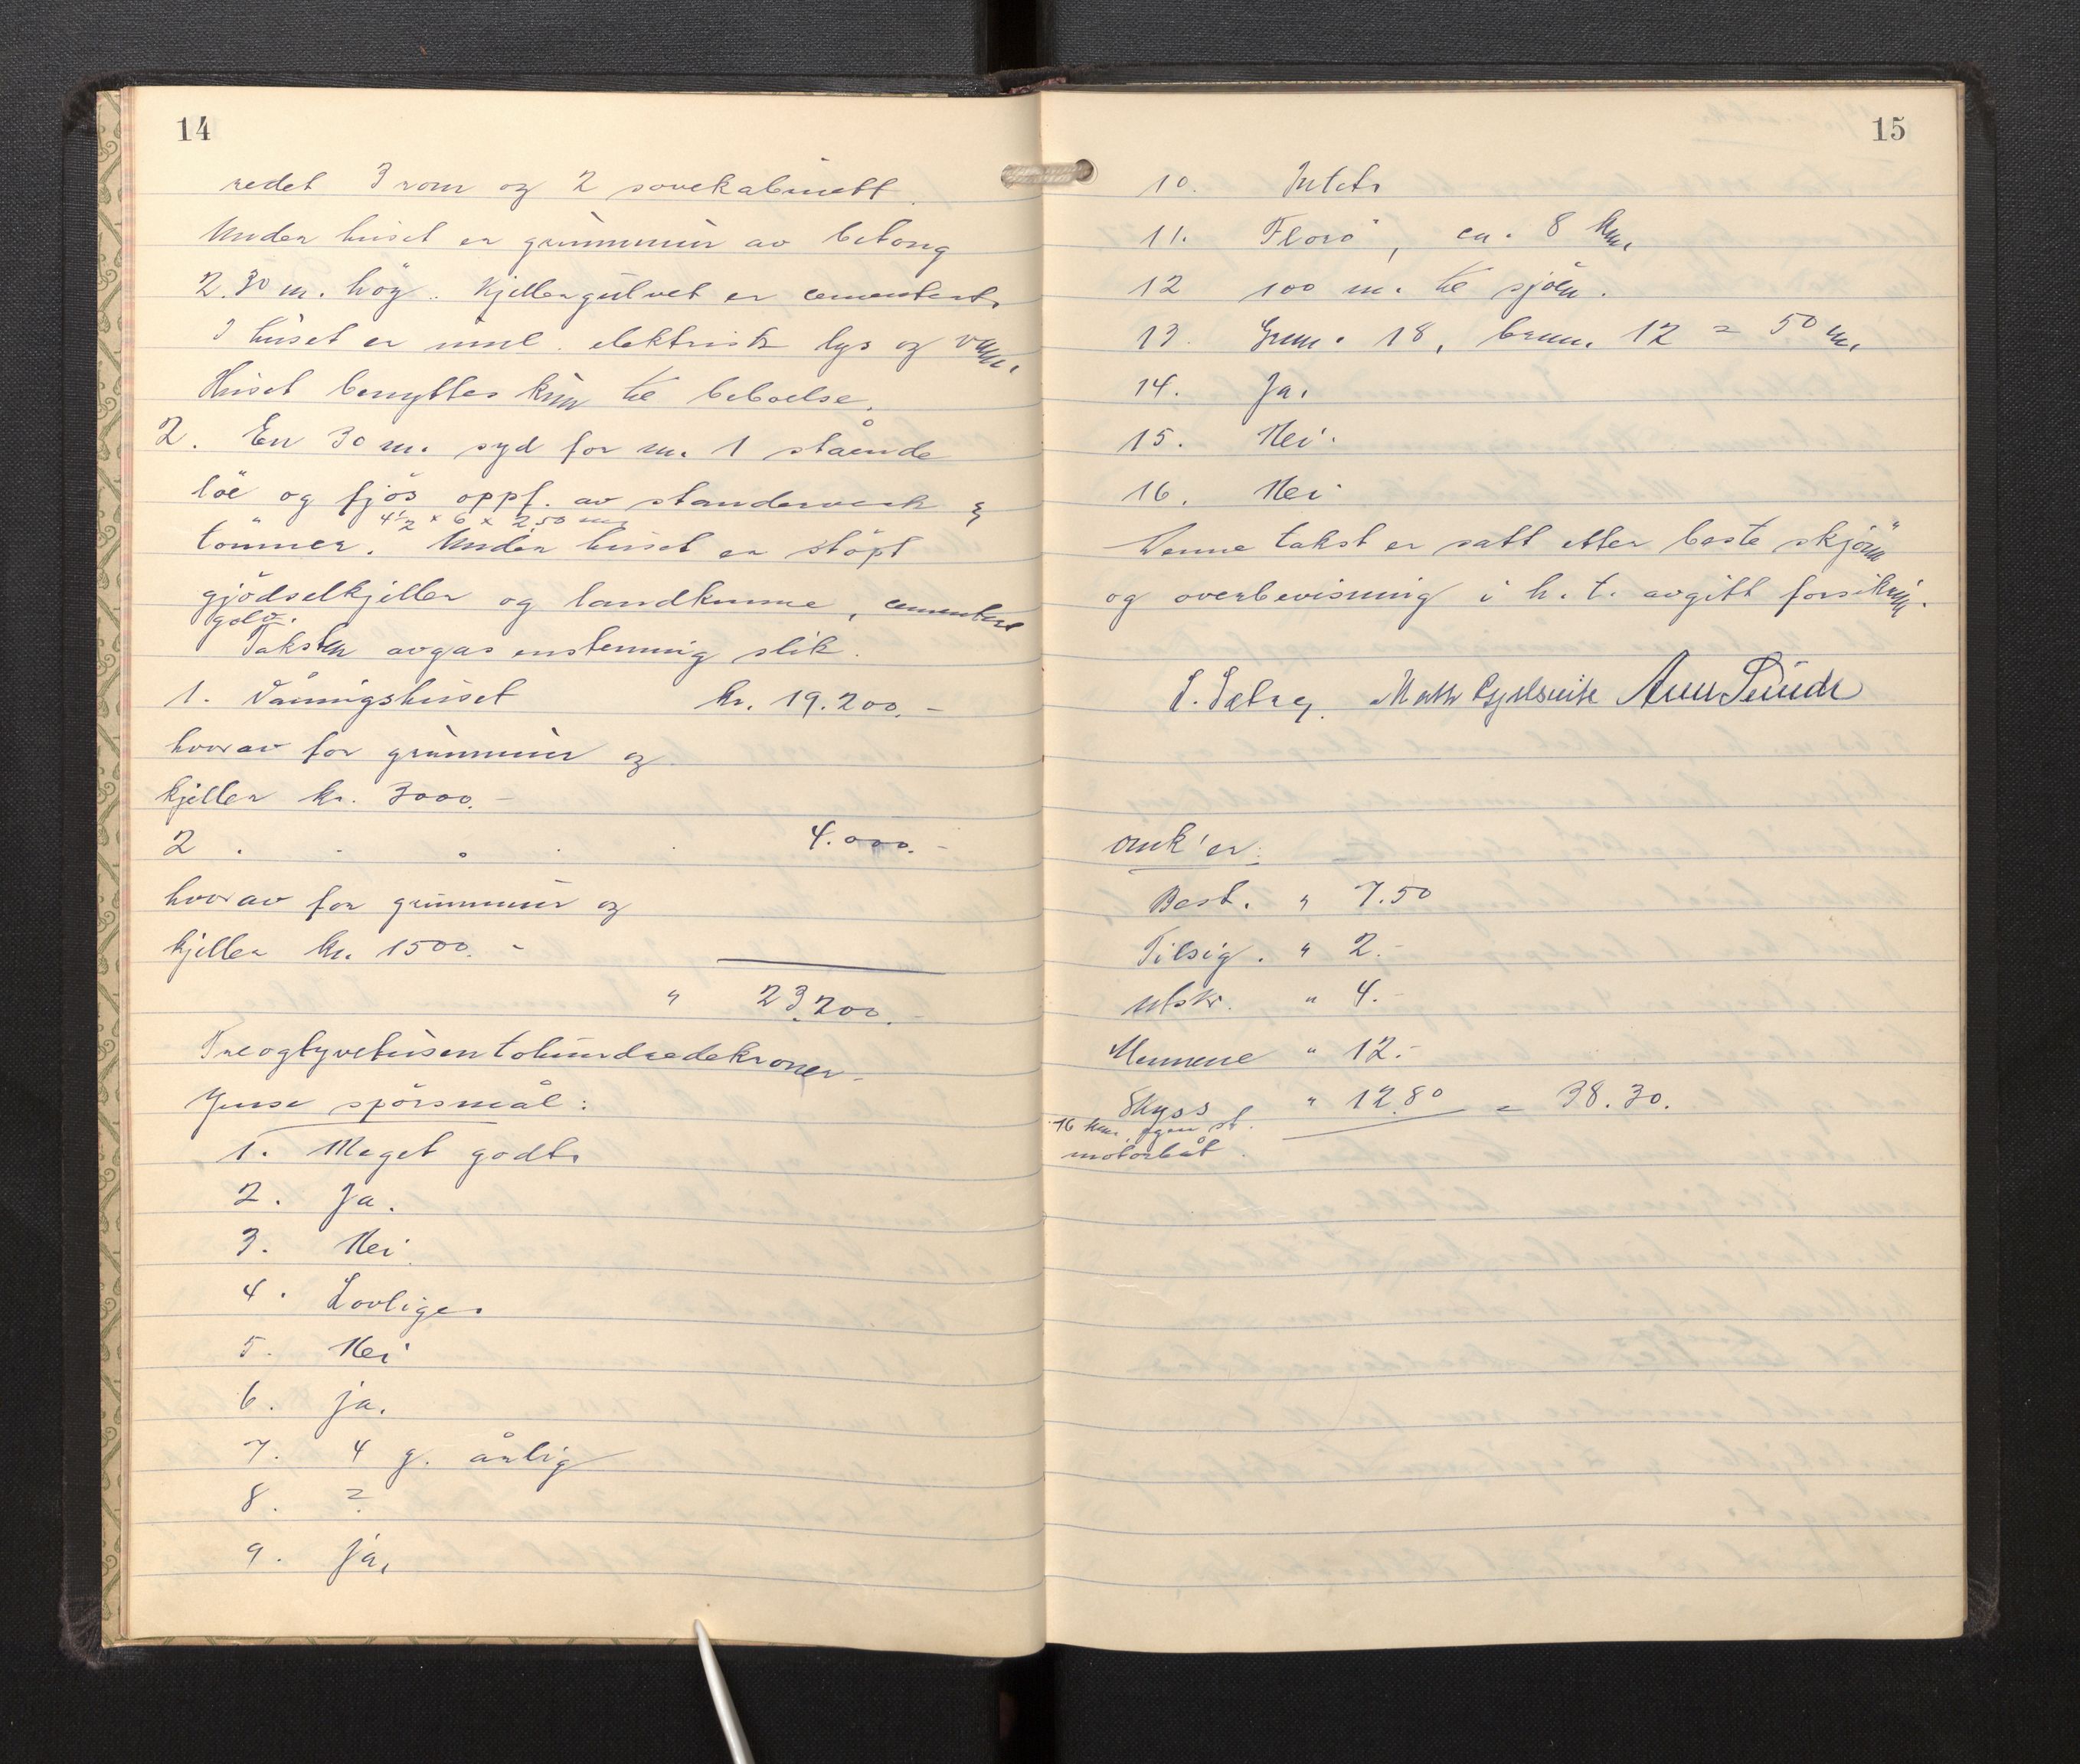 14
redet 3 rom og 2 sovekabinett.
Under huset er grunnmur av betong
2.30 m. høg. Kjellergulvet er cementert.
I huset er innl. elektrisk lys og vann.
Huset benyttes kun til beboelse.
2. En 30 m. syd for nr. 1 stående
löe og fjös oppf. av standerverk &
4½ x 6 x 2.50 m
tömmer. Under huset er stöpt
gjödselkjeller og landkumme, cementert
golv.
Taksten avgas enstemmig slik.
1. Våningshuset kr. 19.200.-
hvorav for grunnmur og
kjeller kr. 3000.-
2 . . . . . 4.000.-
hvorav for grunnmur og
kjeller kr. 1500.-
" 23.200.-
Treogtyvetusentohundredekroner.-
Jense spörsmål:
1. Meget godt.
2. Ja.
3. Nei.
4. Lovlige.
5. Nei
6. ja.
7. 4 g. årlig
8. ?
9. ja.
15
10. Intet.
11. Florö, ca. 8 km.
12 100 m. til sjöen.
13. Grunn. 18, brann. 12 = 50 m.
14. Ja.
15. Nei.
16. Nei
Denne takst er satt etter beste skjönn
og overbevisning i h. t. avgitt forsikring.
S. Sætrey.
omk'er:
Best. " 7.50
Tilsig. " 2.-
utskr. " 4.-
Mennene " 12.-
Skyss " 12.80 = 38.30.
16 km. egen st.
motorbåt.